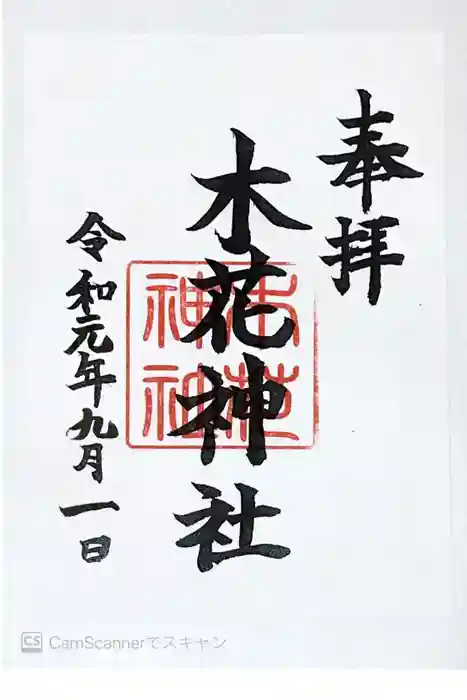 奉拝
木花神社
木花
神社
令和元年九月一日
CS CamScannerでスキャン